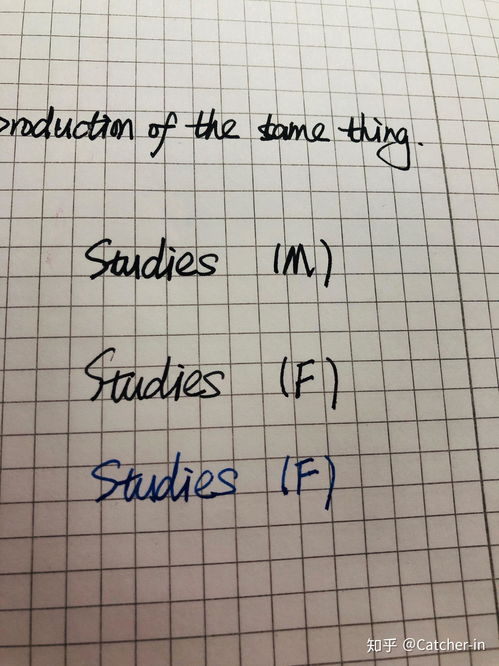 production of the same thing.
Studies (M)
Studies (F)
Studies (F)
知乎 @Catcher-in